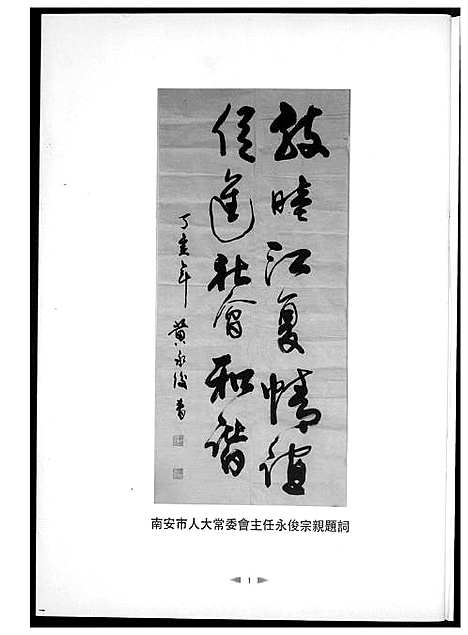 敦睦江夏情誼
促進社會和諧
丁亥年 黃永俊書
南安市人大常委會主任永俊宗親題詞
1